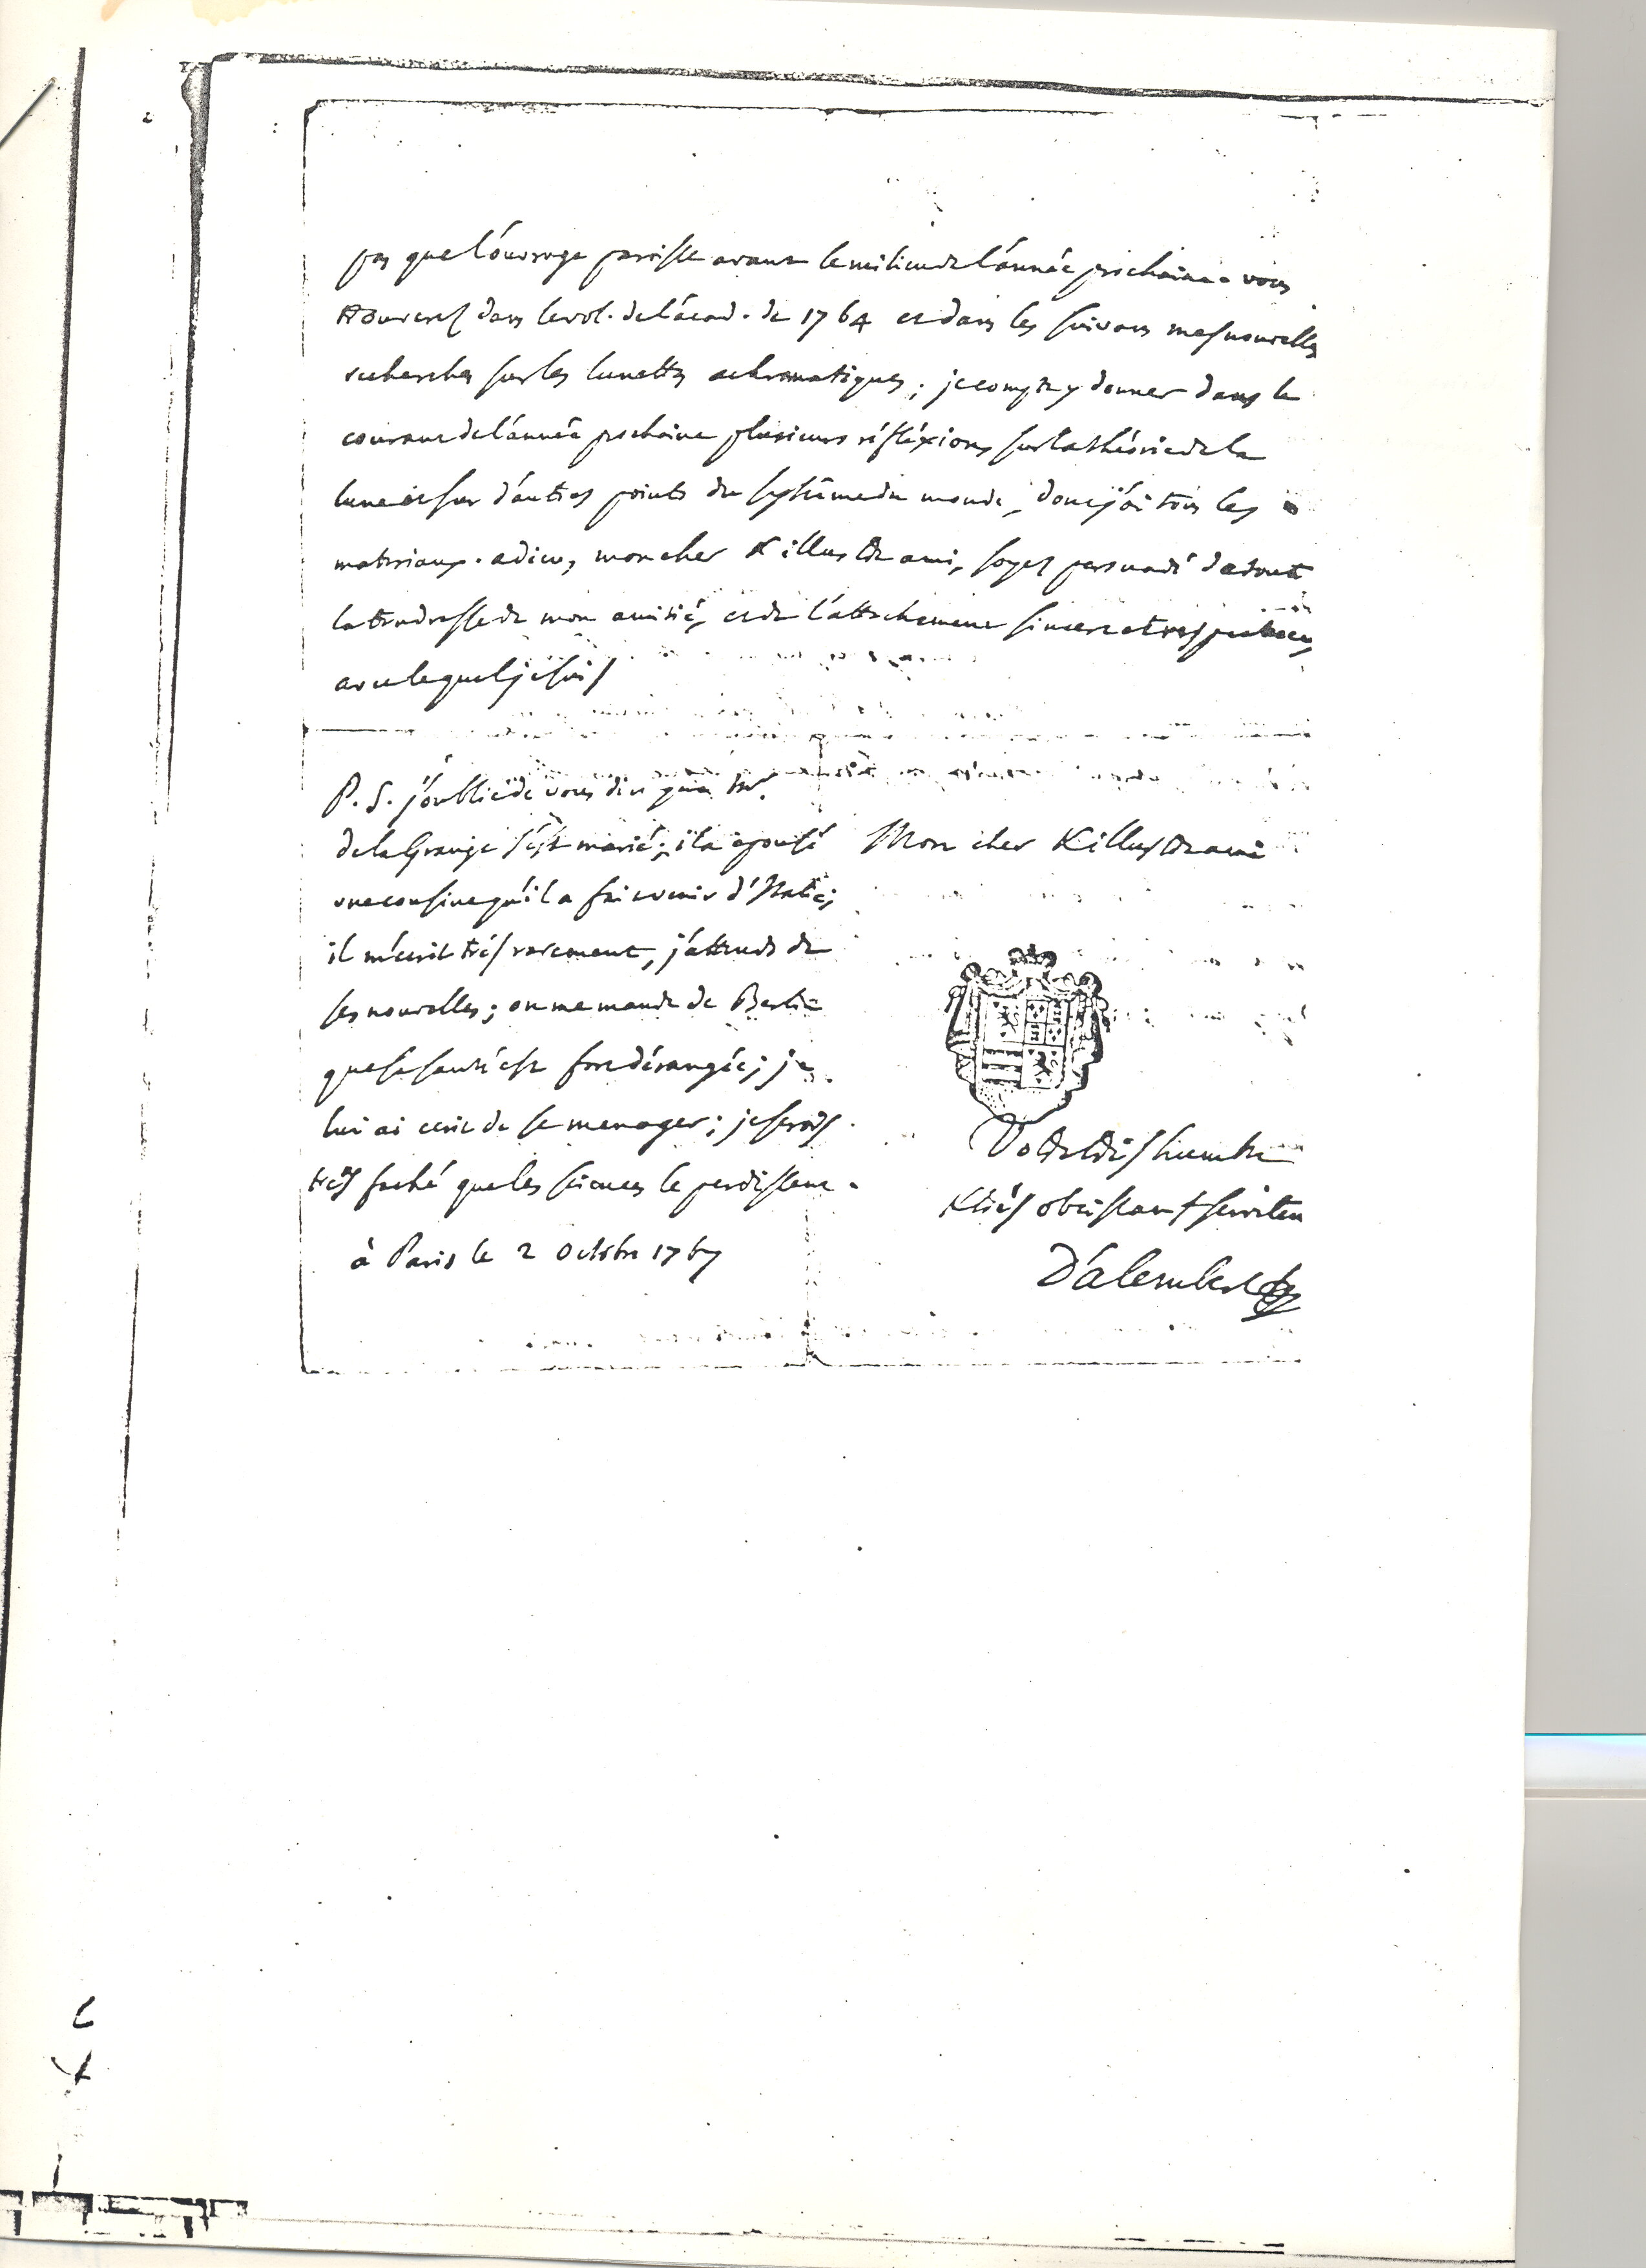 pas que l'ouvrage paroisse avant le milieu de l'année prochaine. vous
trouverez dans le vol. de l'acad. de 1764 et dans les suivans mes nouvelles
recherches sur les lunettes achromatiques; je compte y donner dans le
courant de l'année prochaine plusieurs réfléxions sur la théorie de la
lune et sur d'autres points du systême du monde, dont j'ai tous les
materiaux. adieu, mon cher & illustre ami, soyez persuadé de toute
la tendresse de mon amitié, et de l'attachement sincere et respectueux
avec lequel je suis
P. S. j'oublie de vous dire que Mr.
de la Grange s'est marié; il a épousé
une cousine qu'il a fait venir d'Italie;
il m'ecrit très rarement, j'attends de
ses nouvelles; on me mande de Berlin
que sa santé est fort dérangée; je
lui ai ecrit de se menager; je serois
très faché que les sciences le perdissent.
à Paris le 2 Octobre 1767
Mon cher & illustre ami
Votre très humble
& très obeissant serviteur
D'alembert